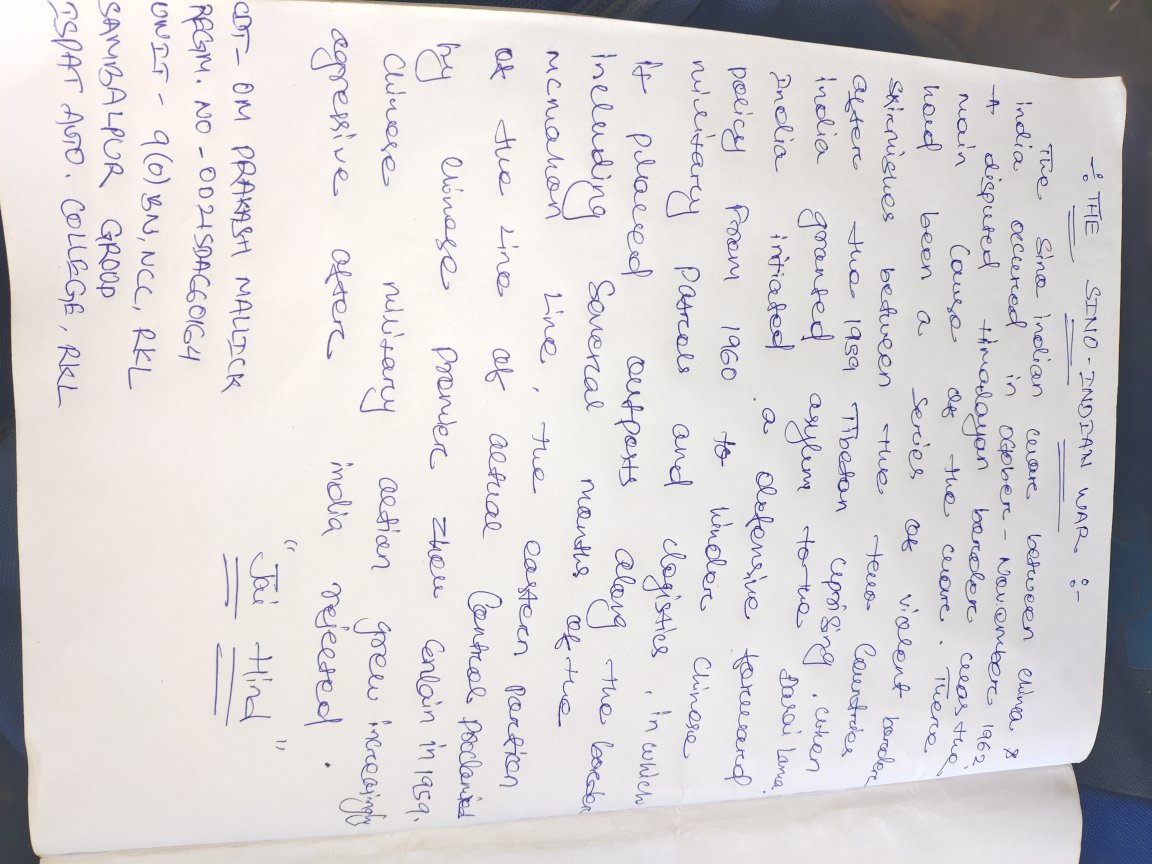 -: THE SINO-INDIAN WAR :-
The Sino indian ware between china &
india occured in October - November 1962
-A disputed Himalayan borader was the
main Cause of the ware. There
hard been a series of violent border
skirmishes between the two Countries
after the 1959 Tibetan uprising. when
india granted asylum to the Dalai Lama
India intiated a defensive forward
policy From 1960 to hinder chinese
military Patrols and logistics, in which
it placed outposts along the border
including Several months of the
mcmahon Line, the eastern Portion
of the Line of actual Control Proclamied
by chinese Premier zhou Enlain in 1959.
chinese military action grew increasingly
agressive after india rejected.
"Jai Hind"
CDT- OM PRAKASH MALICK
REGM. NO-OD21SDA660164
UNIT - 9(O) BN, NCC, RKL
SAMBALPUR GROUP
ISPAT AUTO. COLLEGE, RKL